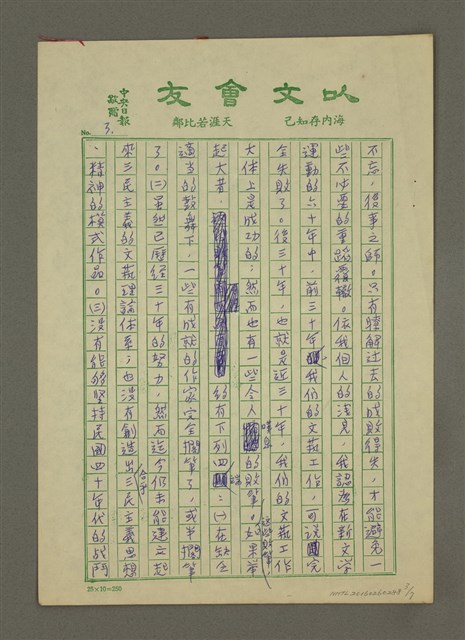 以文會友
海内存知己 天涯若比鄰
中央日報
敬贈
No. 3.
不忘，後事之師。只有瞭解过去的成敗得失，才能避免一
些不必要的重蹈覆轍。依我個人的淺見，我認為在新文学
運動的六十年中，前三十年我們的文藝工作，可說完
全失敗了。後三十年，也就是近三十年，我們的文藝工作
大体上是成功的；然而也有一些令人嘆息的敗筆。如果举
這些敗筆
起大者，約有下列四端：㈠在缺乏
適当的鼓舞下，一些有成就的作家完全擱筆了，或半擱筆
了。㈡虽然已歷經三十年的努力，然而迄今仍未能建立起
來三民主義的文藝理論体系；也沒有創造出合乎三民主義思想
、精神的模式作品。㈢沒有能夠堅持民國四十年代的战鬥
25×10=250
3/7